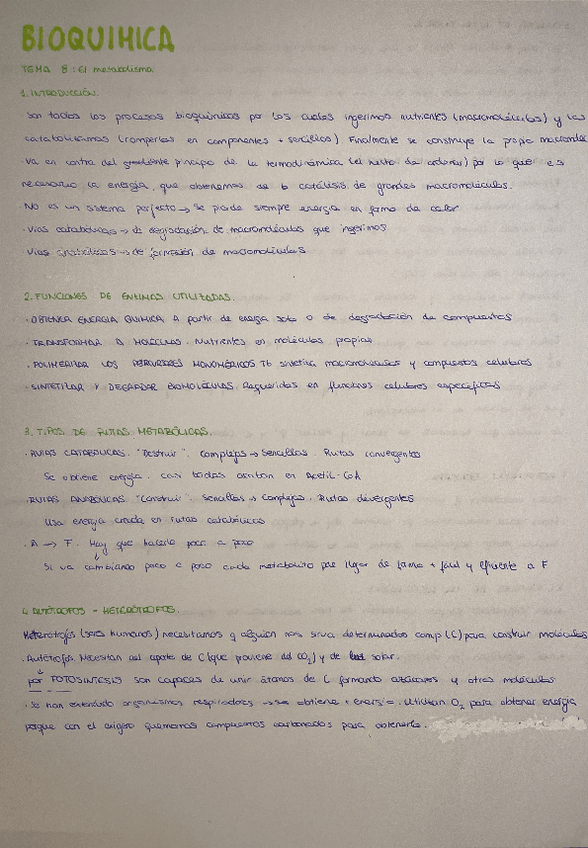 BIOQUIMICA
TEMA 8: El metabolismo.
1. INTRODUCCIÓN.
Son todos los procesos bioquímicos por los cuales ingerimos nutrientes (macromoléculas) y las
catabolizamos (romperlas en componentes + sencillos) Finalmente se construye la propia
Va en contra del principio de la termodinámica (el hecho de ordenar) por lo que es
necesario la energía, que obtenemos de la catálisis de grandes macromoléculas.
· NO es un sistema perfecto → Se pierde siempre energía en forma de calor
· Vías catabólicas → de degradación de macromoléculas que ingerimos
Vías anabólicas → de formación de macromoléculas
2. FUNCIONES DE ENZIMAS UTILIZADAS.
· OBTENER ENERGIA QUIMICA A partir de energía solar o de degradación de compuestos
· TRANSFORMAR A MOLÉCULAS. Nutrientes en moléculas propias
· POLIMERIZAR LOS PRECURSORES MONOMÉRICOS Tb sintetiza macromoléculas y compuestos celulares
· SINTETIZAR Y DEGRADAR BIOMOLÉCULAS. Requeridas en funciones celulares específicas
3. TIPOS DE RUTAS METABÓLICAS.
· RUTAS CATABÓLICAS. "Destruir". Complejas → Sencillas. Rutas convergentes
Se obtiene energía. casi todas acaban en Acetil-CoA
· RUTAS ANABÓLICAS "Construir". Sencillas → Complejas. Rutas divergentes
Usa energía creada en rutas catabólicas
· A → F. Hay que hacerlo poco a poco
Si va cambiando poco a poco cada metabolito puede llegar de forma + fácil y eficiente a F
4. AUTÓTROFOS - HETERÓTROFOS.
Heterótrofos (seres humanos) necesitamos q alguien nos sirva determinados comp (C) para construir moléculas
· Autótrofos Necesitan del aporte de C (que proviene del CO₂) y de luz solar.
por FOTOSINTESIS son capaces de unir átomos de C formando azúcares y otras moléculas
· Se han extendido organismos respiradores → se obtiene + energía. Utilizan O₂ para obtener energía
porque con el oxígeno quemamos compuestos carbonados para obtenerla.